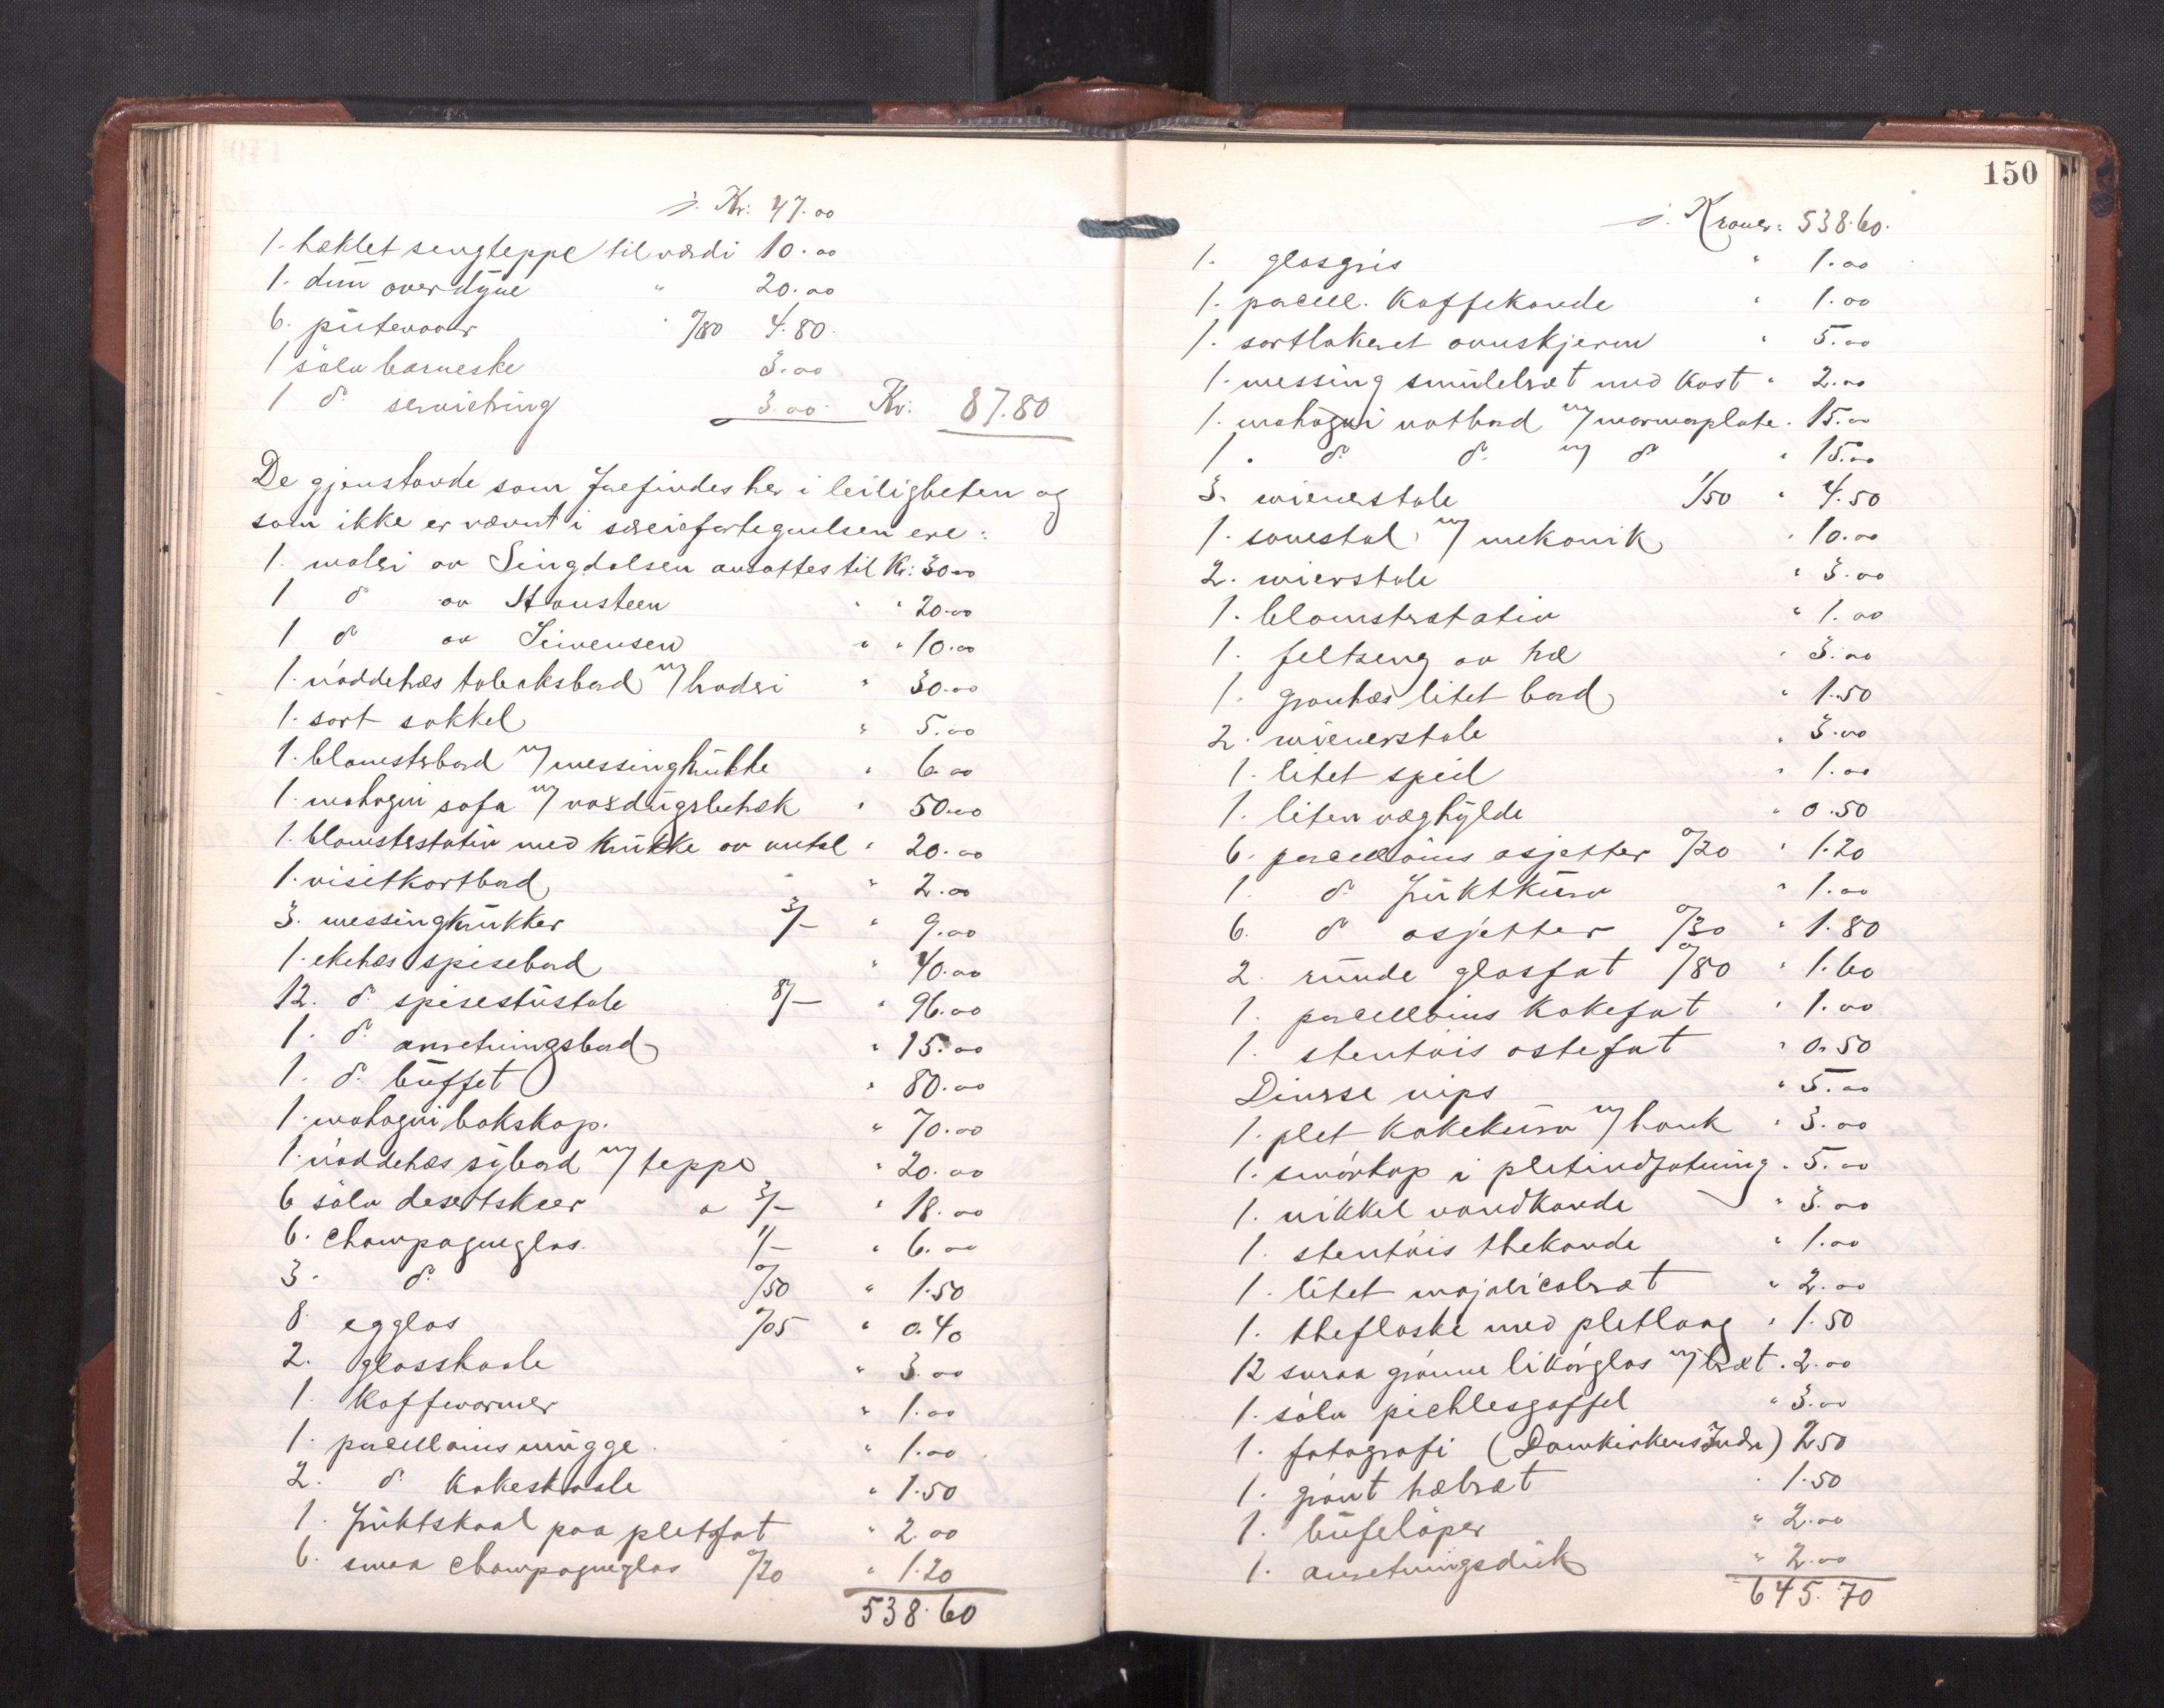 j. Kr: 47.00
1. heklet sengteppe til værdi 10.00
1. dun overdyne " 20.00
6. putevaar " 0/80 4.80
1 sølv barneske 3.00
1 do serviettring 3.00 Kr: 87.80
De gjenstande som forefindes her i leiligheten og
som ikke er nævnt i særeiefortegnelsen ere:
1. maleri av Singdalsen ansattes til Kr: 30.00
1 do av Hansteen " " 20.00
1 do av Simensen " " 10.00
1. nøddetræs tobaksbord m/ broderi " 30.00
1. sort sokkel " 5.00
1. blomsterbord m/ messingkrukke " 6.00
1. mahogni sofa m/ voksdugsbetræk " 50.00
1. blomsterstativ med krukke av metal " 20.00
1. visitkortbord " 2.00
3. messingkrukker 3/- " 9.00
1. eketræs spisebord " 40.00
12. do spisestustole 8/- " 96.00
1. do anretningsbord " 15.00
1. do buffet " 80.00
1. mahogni bokskap. " 70.00
1. nøddetræs sybord m/ teppe " 20.00
6 sølv desertskeer a 3/- " 18.00
6. Champagneglas. 1/- " 6.00
3. do 0/50 " 1.50
8. egglas 0/05 " 0.40
2. glasskaale " 3.00
1. Kaffevarmer " 1.00
1. porcellains mugge " 1.00
2. do kakeskaale " 1.50
1. fruktskaal paa pletfat " 2.00
6. smaa Champagneglas 0/20 " 1.20
538.60
150
j. Kroner: 538.60.
1. glasgris " 1.00
1. porcell. Kaffekande " 1.00
1. sortlakeret ovnskjerm " 5.00
1. messing smulebræt med kost " 2.00
1. mahogni natbord m/ marmorplate. 15.00
1. do do m/ do " 15.00
3. wienerstole 1/50 " 4.50
1. pianostol m/ mekanik " 10.00
2. wienerstole " 3.00
1. blomsterstativ " 1.00
1. feltseng av træ " 3.00
1. grantræs litet bord " 1.50
2. wienerstole " 3.00
1. litet speil " 1.00
1. liten væghylde " 0.50
6. porcellains asjetter 0/20 " 1.20
1. do fruktkurv " 1.00
6. do asjetter 0/30 " 1.80
2. runde glasfat 0/80 " 1.60
1. porcellains kakefat " 1.00
1. stentøis ostefat " 0.50
Diverse nips " 5.00
1. plet kakekurv m/ hank " 3.00
1. smørkop i pletindfatning " 5.00
1. nikkel vandkande " 3.00
1. stentøis thekande " 1.00
1. litet majolicabræt " 2.00
1. theflaske med pletlaag " 1.50
12 smaa grønne likørglas m/ bræt. 2.00
1. sølv picklesgaffel " 3.00
1. fotografi (Domkirkens Indre) 2.50
1. grønt træbræt " 1.50
1. bufeløper " 2.00
1. anretningsduk " 2.00
645.70